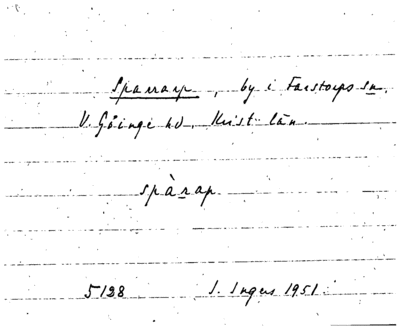 Sparrarp, by i Farstorps sn,
V. Göinge hd, Krist. län.
spàrap
5128 I. Ingers 1951.